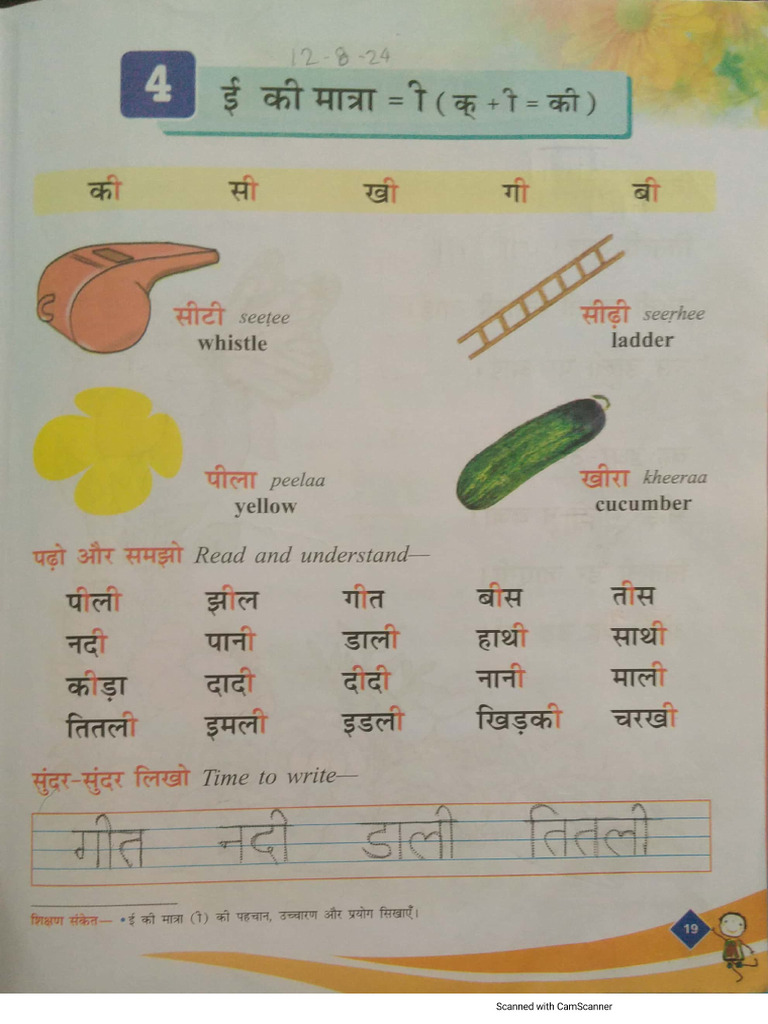 12-8-24
4 ई की मात्रा = ी ( क् + ी = की )
की सी खी गी बी
सीटी seeṭee
whistle
सीढ़ी seeṛhee
ladder
पीला peelaa
yellow
खीरा kheeraa
cucumber
पढ़ो और समझो Read and understand—
पीली झील गीत बीस तीस
नदी पानी डाली हाथी साथी
कीड़ा दादी दीदी नानी माली
तितली इमली इडली खिड़की चरखी
सुंदर-सुंदर लिखो Time to write—
गीत नदी डाली तितली
शिक्षण संकेत— • ई की मात्रा (ी) की पहचान, उच्चारण और प्रयोग सिखाएँ।
19
Scanned with CamScanner